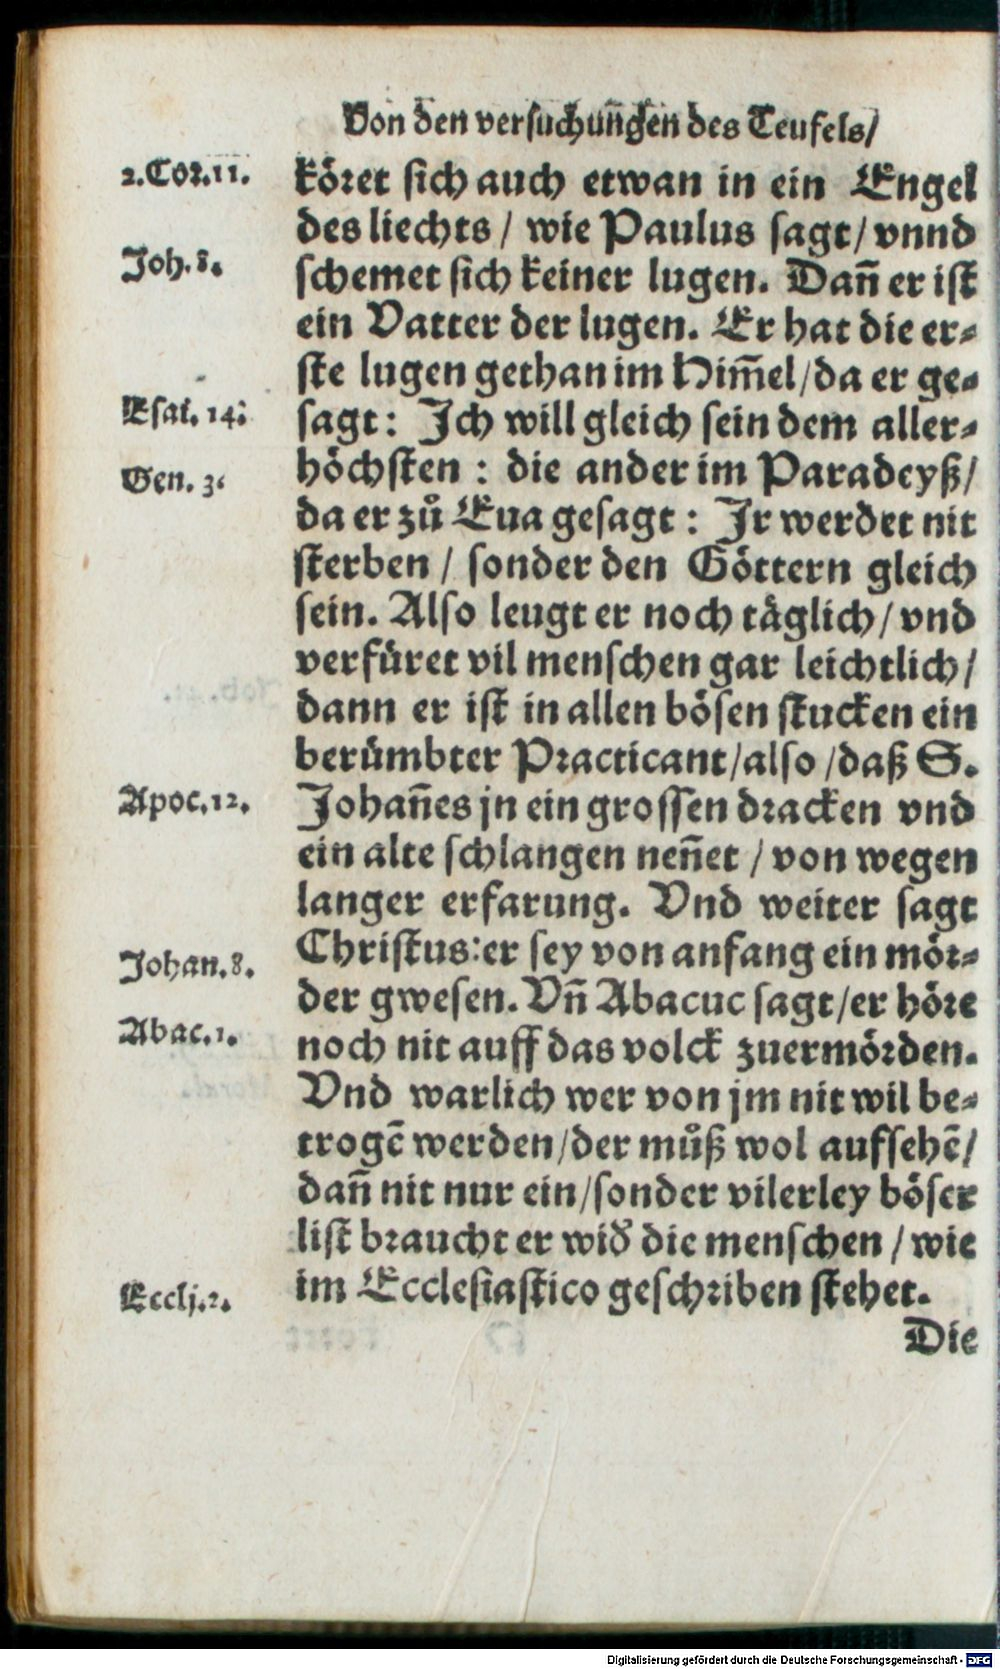 Von den versuchun̄gen des Teufels/
2.Cor.11.
köret sich auch etwan in ein Engel
des liechts / wie Paulus sagt/ vnnd
Joh.8.
schemet sich keiner lugen. Dan̄ er ist
ein Vatter der lugen. Er hat die er⸗
ste lugen gethan im Him̄el/da er ge⸗
Esai. 14.
sagt: Ich will gleich sein dem aller⸗
Gen. 3.
höchsten : die ander im Paradeyß/
da er zů Eua gesagt : Ir werdet nit
sterben / sonder den Göttern gleich
sein. Also leugt er noch täglich/ vnd
verfüret vil menschen gar leichtlich/
dann er ist in allen bösen stucken ein
berümbter Practicant/also /daß S.
Apoc.12.
Johan̄es jn ein grossen dracken vnd
ein alte schlangen nen̄et / von wegen
langer erfarung. Vnd weiter sagt
Johan.8.
Christus:er sey von anfang ein mör⸗
der gwesen. Vn̄ Abacuc sagt/er höre
Abac.1.
noch nit auff das volck zuermörden.
Vnd warlich wer von jm nit wil be⸗
trogē werden/der můß wol aufsehē/
dan̄ nit nur ein/sonder vilerley böser
list braucht er wid̛ die menschen / wie
Ecclj.2.
im Ecclesiastico geschriben stehet.
Die
Digitalisierung gefördert durch die Deutsche Forschungsgemeinschaft - DFG